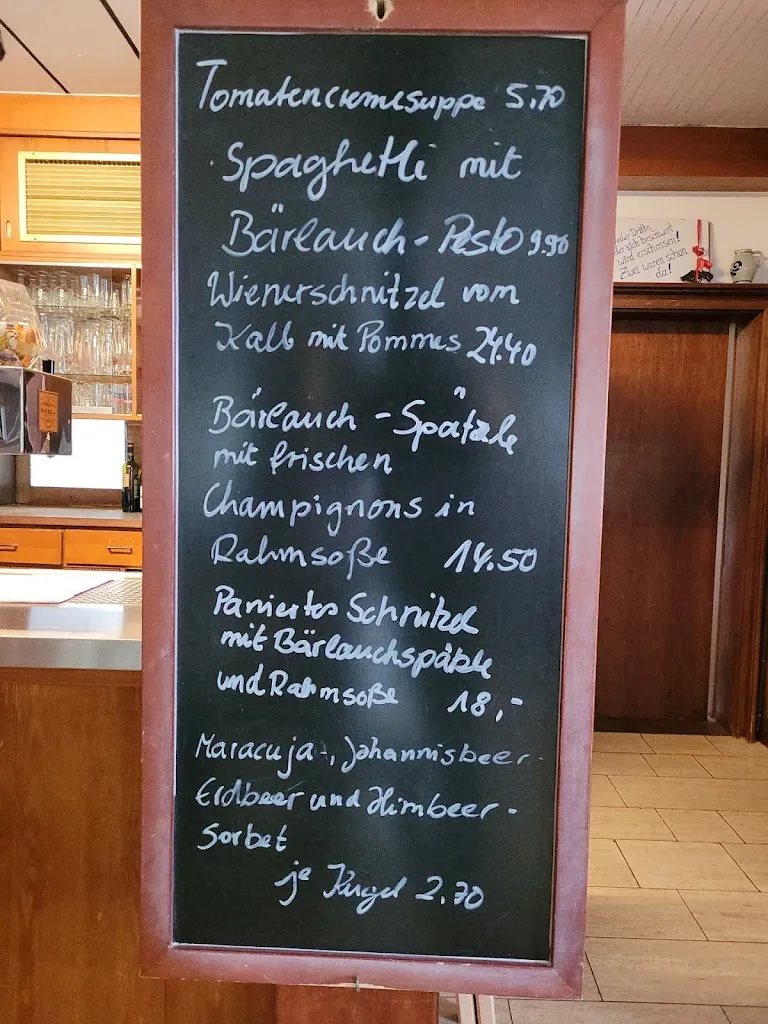 Tomatencremesuppe 5,70
Spaghetti mit
Bärlauch-Pesto 9.90
Wienerschnitzel vom
Kalb mit Pommes 24.40
Bärlauch-Spätzle
mit frischen
Champignons in
Rahmsoße 14.50
Paniertes Schnitzel
mit Bärlauchspätzle
und Rahmsoße 18,-
Maracuja-, Johannisbeer-
Erdbeer und Himbeer-
Sorbet
je Kugel 2.70
jeder Dritte,
der sich beschwert
wird erschossen!
Zwei waren schon
da!